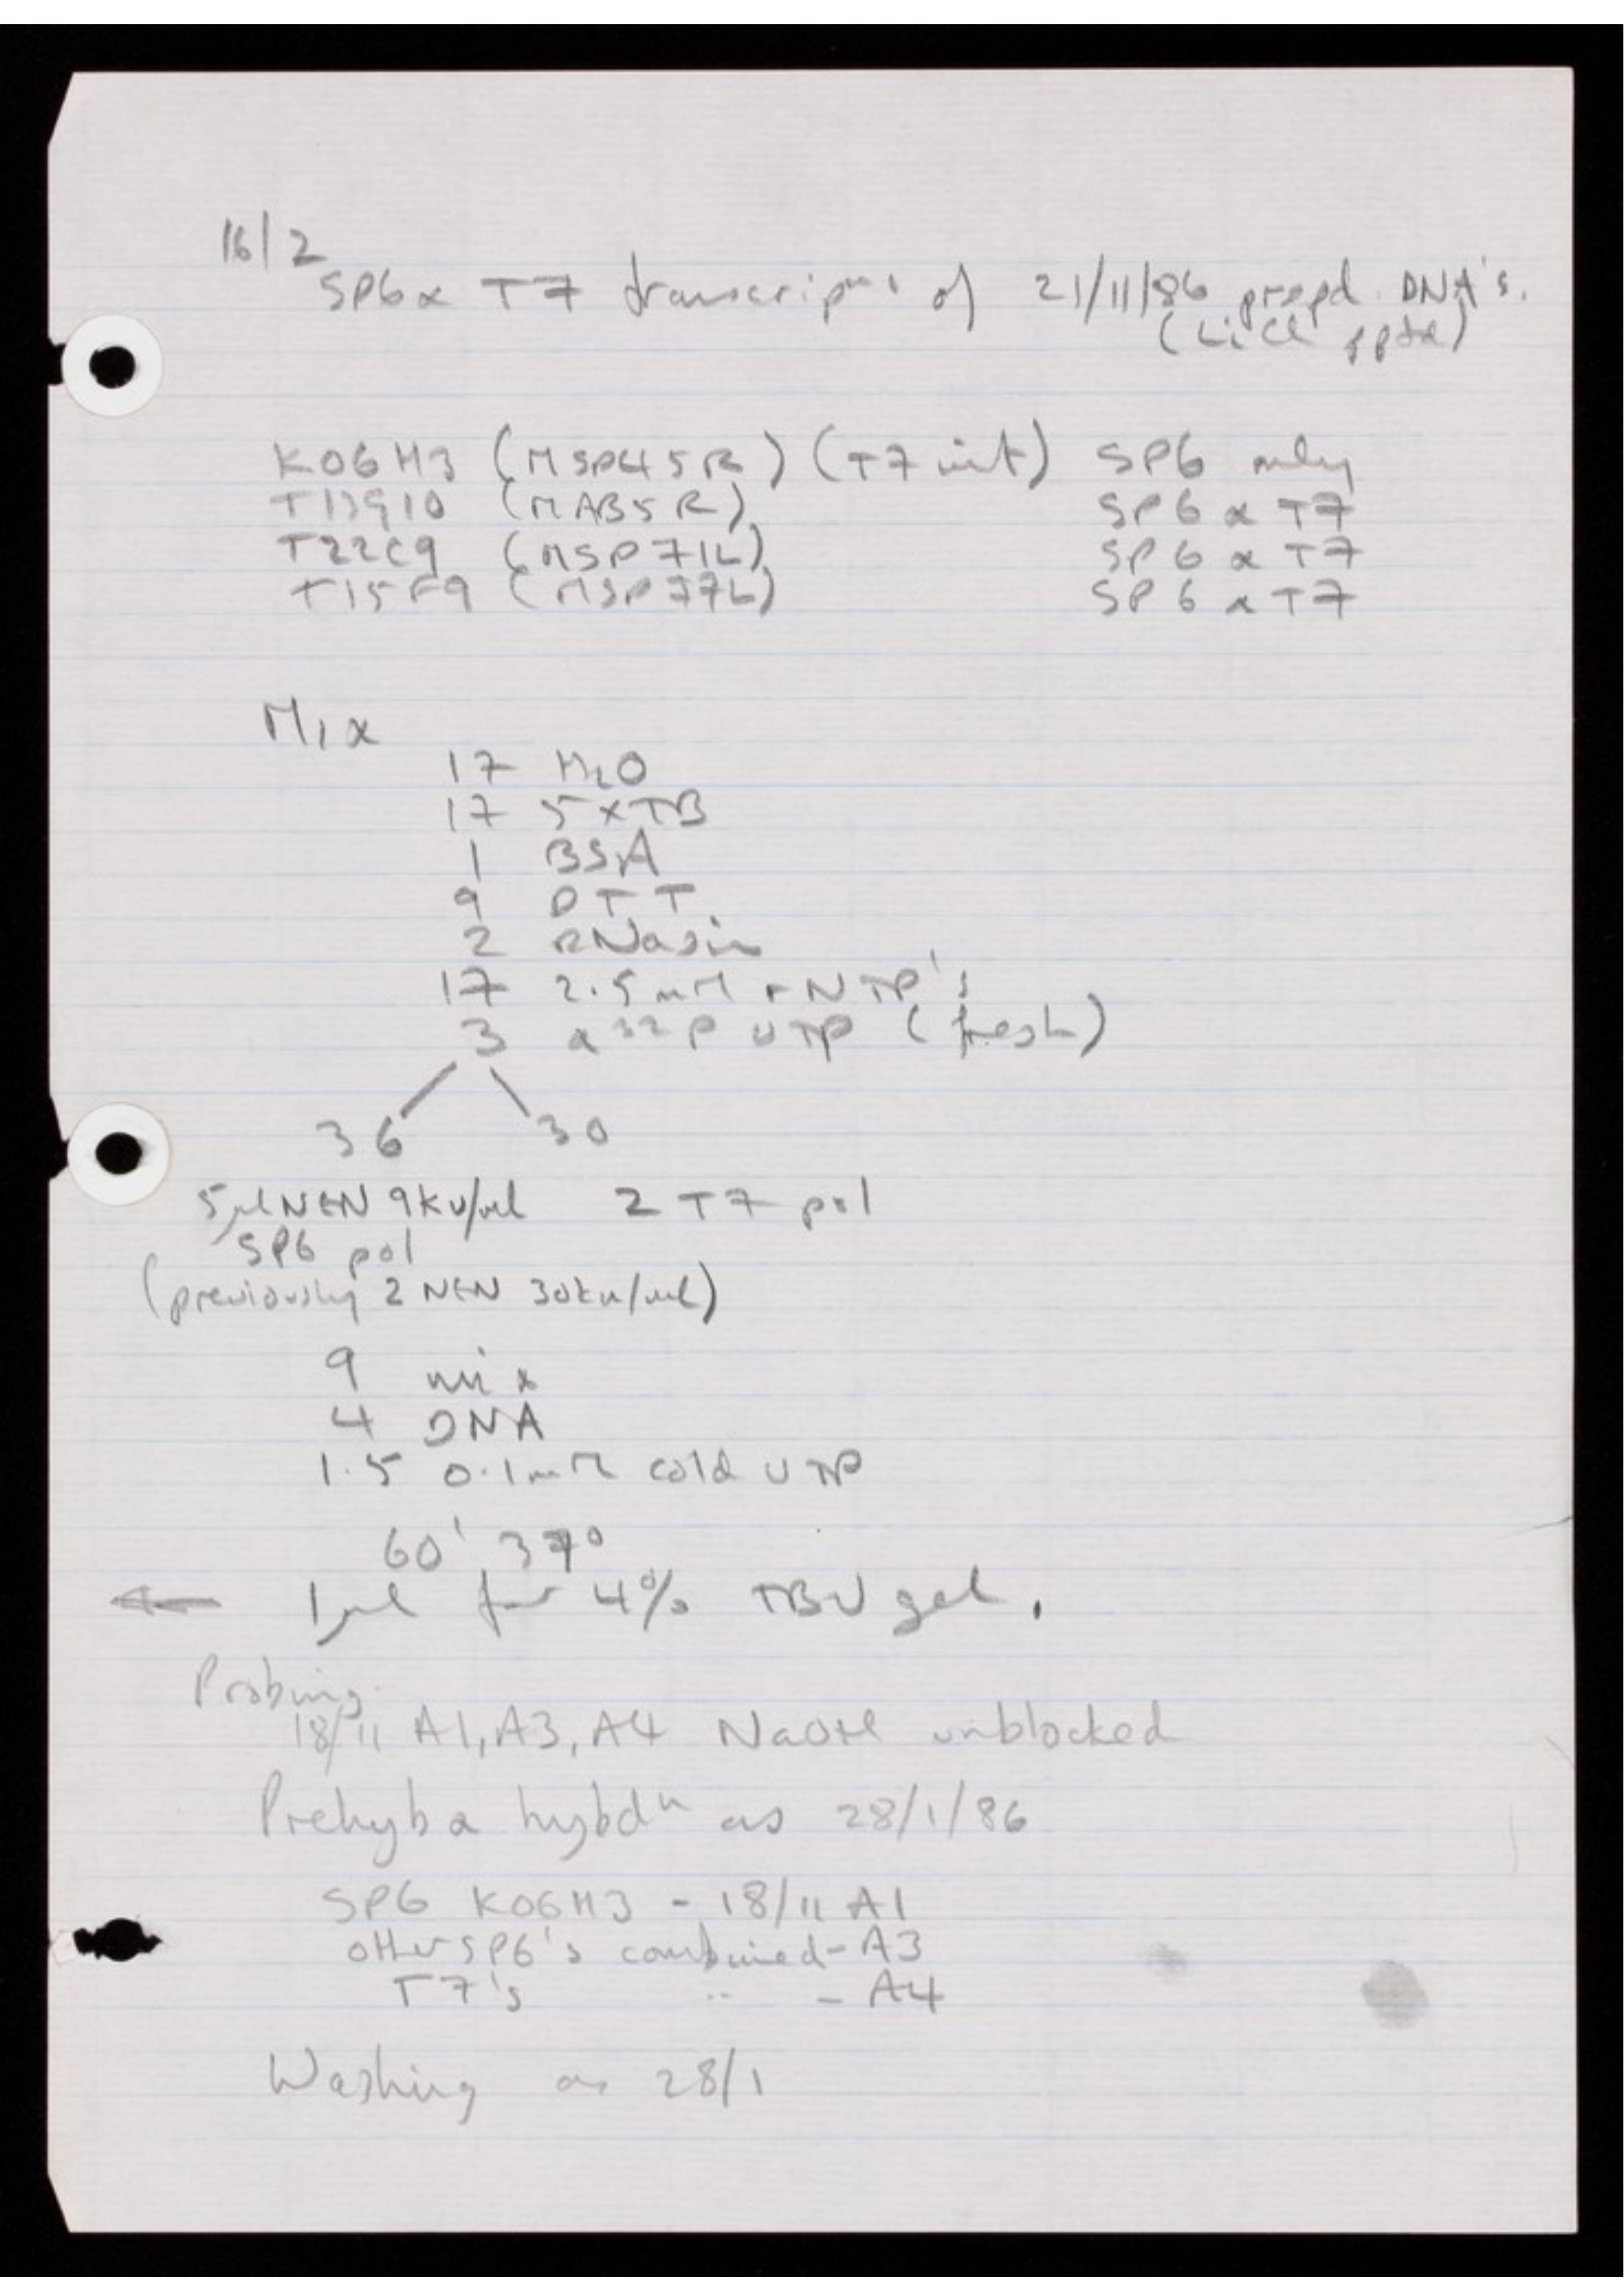 16/2
SP6 & T7 transcripⁿˢ of 21/11/86 prepd. DNA's.
(LiCl pptd)
K06H3 (MSP45R) (T7 int) SP6 only
T13G10 (MAB5R) SP6 & T7
T22C9 (MSP71L) SP6 & T7
T15F9 (MSP77L) SP6 & T7
Mix
17 H₂O
17 5xTB
1 BSA
9 DTT
2 RNasin
17 2.5mM rNTP's
3 α³²P UTP (fresh)
36 30
5μl NEN 9KU/ml 2 T7 pol
SP6 pol
(previously 2 NEN 30ku/ml)
9 mix
4 DNA
1.5 0.1mM cold UTP
60' 37°
← 1μl for 4% TBU gel.
Probing.
18/11 A1, A3, A4 NaOH unblocked
Prehyb & hybdⁿ as 28/1/86
SP6 K06H3 - 18/11 A1
other SP6's combined - A3
T7's " - A4
Washing as 28/1